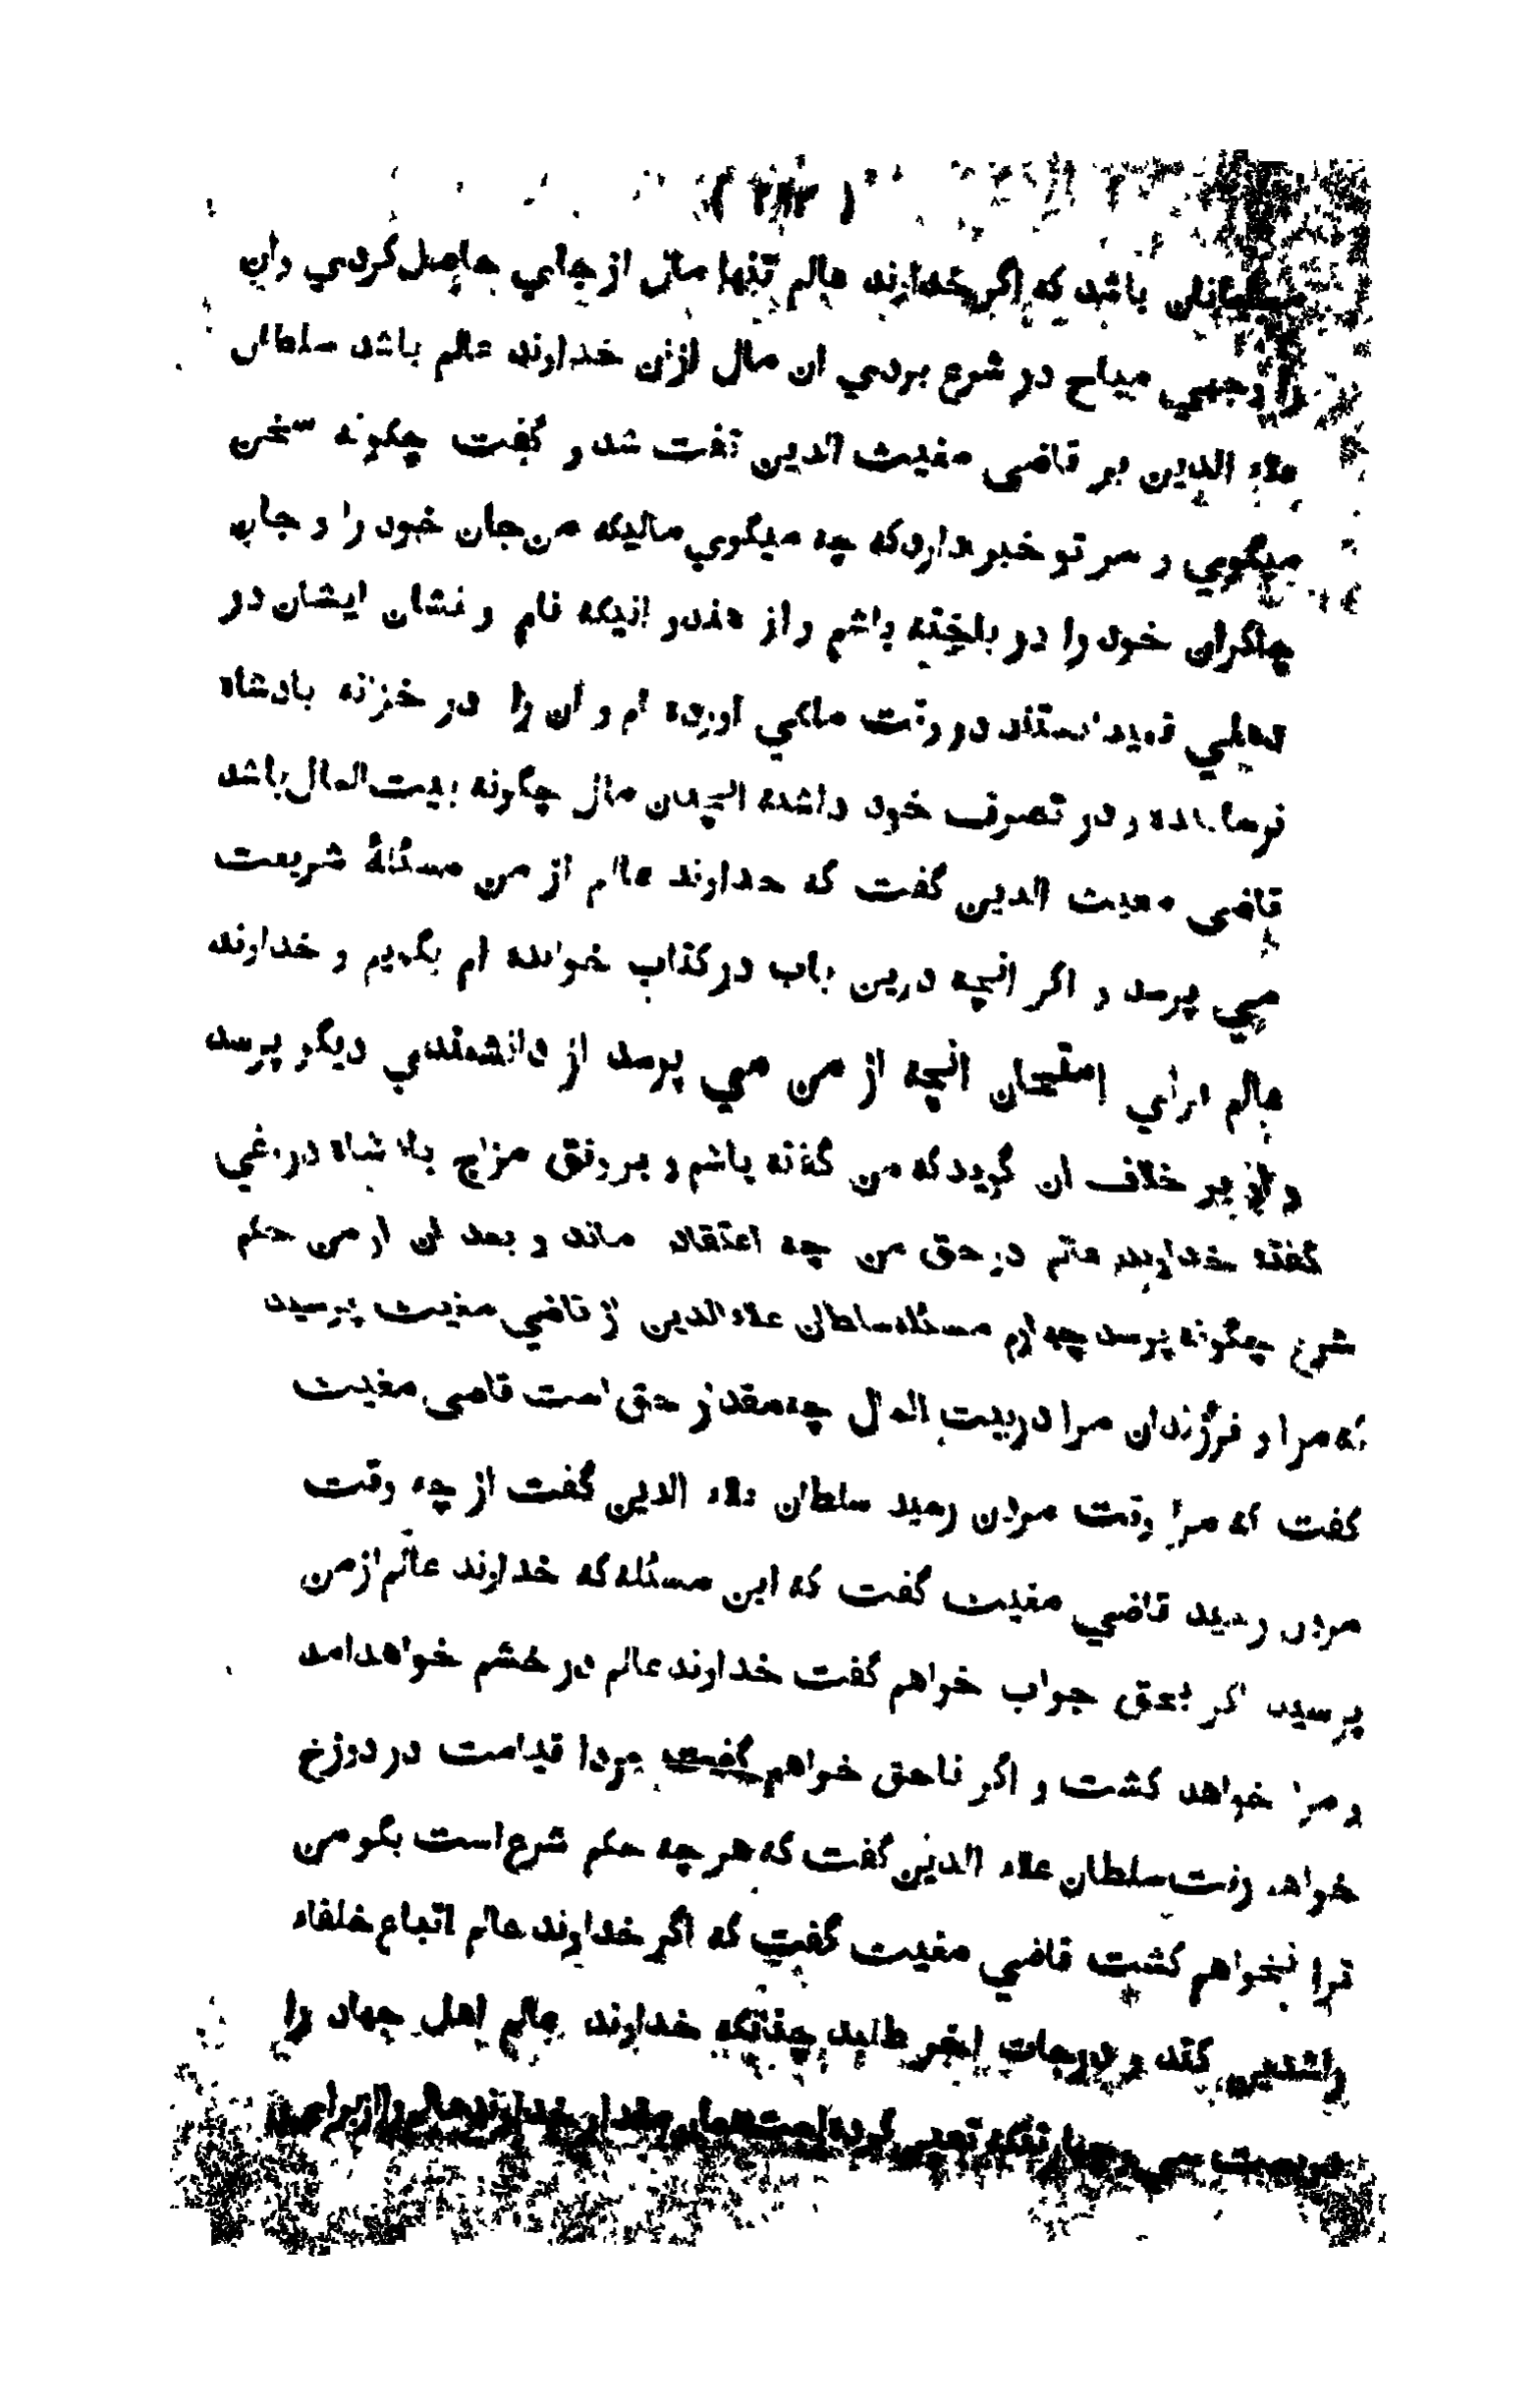 ( ۲۹۳ )
مسلمانان باشد که اگر خداوند عالم تنها مال از جاي حاصل کردي وان
را وجهي مباح در شرع بردي ان مال ازان خداوند عالم باشد سلطان
علاء الدين بر قاضي مغيث الدين تفت شد و گفت چگونه سخن
ميگوي و سر تو خبر دارد که چه ميگوي ماليکه من جان خود را و جان
چاکران خود را در باخته باشم و از هندو انيکه نام و نشان ايشان در
دهلي نميدانستند در وقت ملکي اورده ام و ان را در خزانه بادشاه
نرسانده و در تصرف خود داشته انچنان مال چگونه بيت المال باشد
قاضي مغيث الدين گفت که خداوند عالم از من مسئلۀ شريعت
مي پرسد و اگر انچه درين باب در کتاب خوانده ام بگويم و خداوند
عالم براي امتحان انچه از من مي پرسد از دانشمندي ديگر پرسد
و او بر خلاف ان گويد که من گفته باشم و بر وفق مزاج بادشاه دروغي
گفته خداوند عالم در حق من چه اعتقاد ماند و بعد ان از من حکم
شرع چگونه پرسد چهارم مسئله سلطان علاء الدين از قاضي مغيث پرسيد
که مرا و فرزندان مرا در بيت المال چه مقدار حق است قاضي مغيث
گفت که مرا وقت مردن رسيد سلطان علاء الدين گفت از چه وقت
مردن رسيد قاضي مغيث گفت که اين مسئله که خداوند عالم از من
پرسيد اگر بحق جواب خواهم گفت خداوند عالم در خشم خواهد امد
و مرا خواهد کشت و اگر ناحق خواهم گفت فردا قيامت در دوزخ
خواهم رفت سلطان علاء الدين گفت که هر چه حکم شرع است بگو من
ترا نخواهم کشت قاضي مغيث گفت که اگر خداوند عالم اتباع خلفاء
راشدين کند و درجات اخر طلبد چنانکه خداوند عالم اهل جهاد را
دويست سي و چهار تنکه تعين کرده است همان مقدار خداوند عالم را از براي